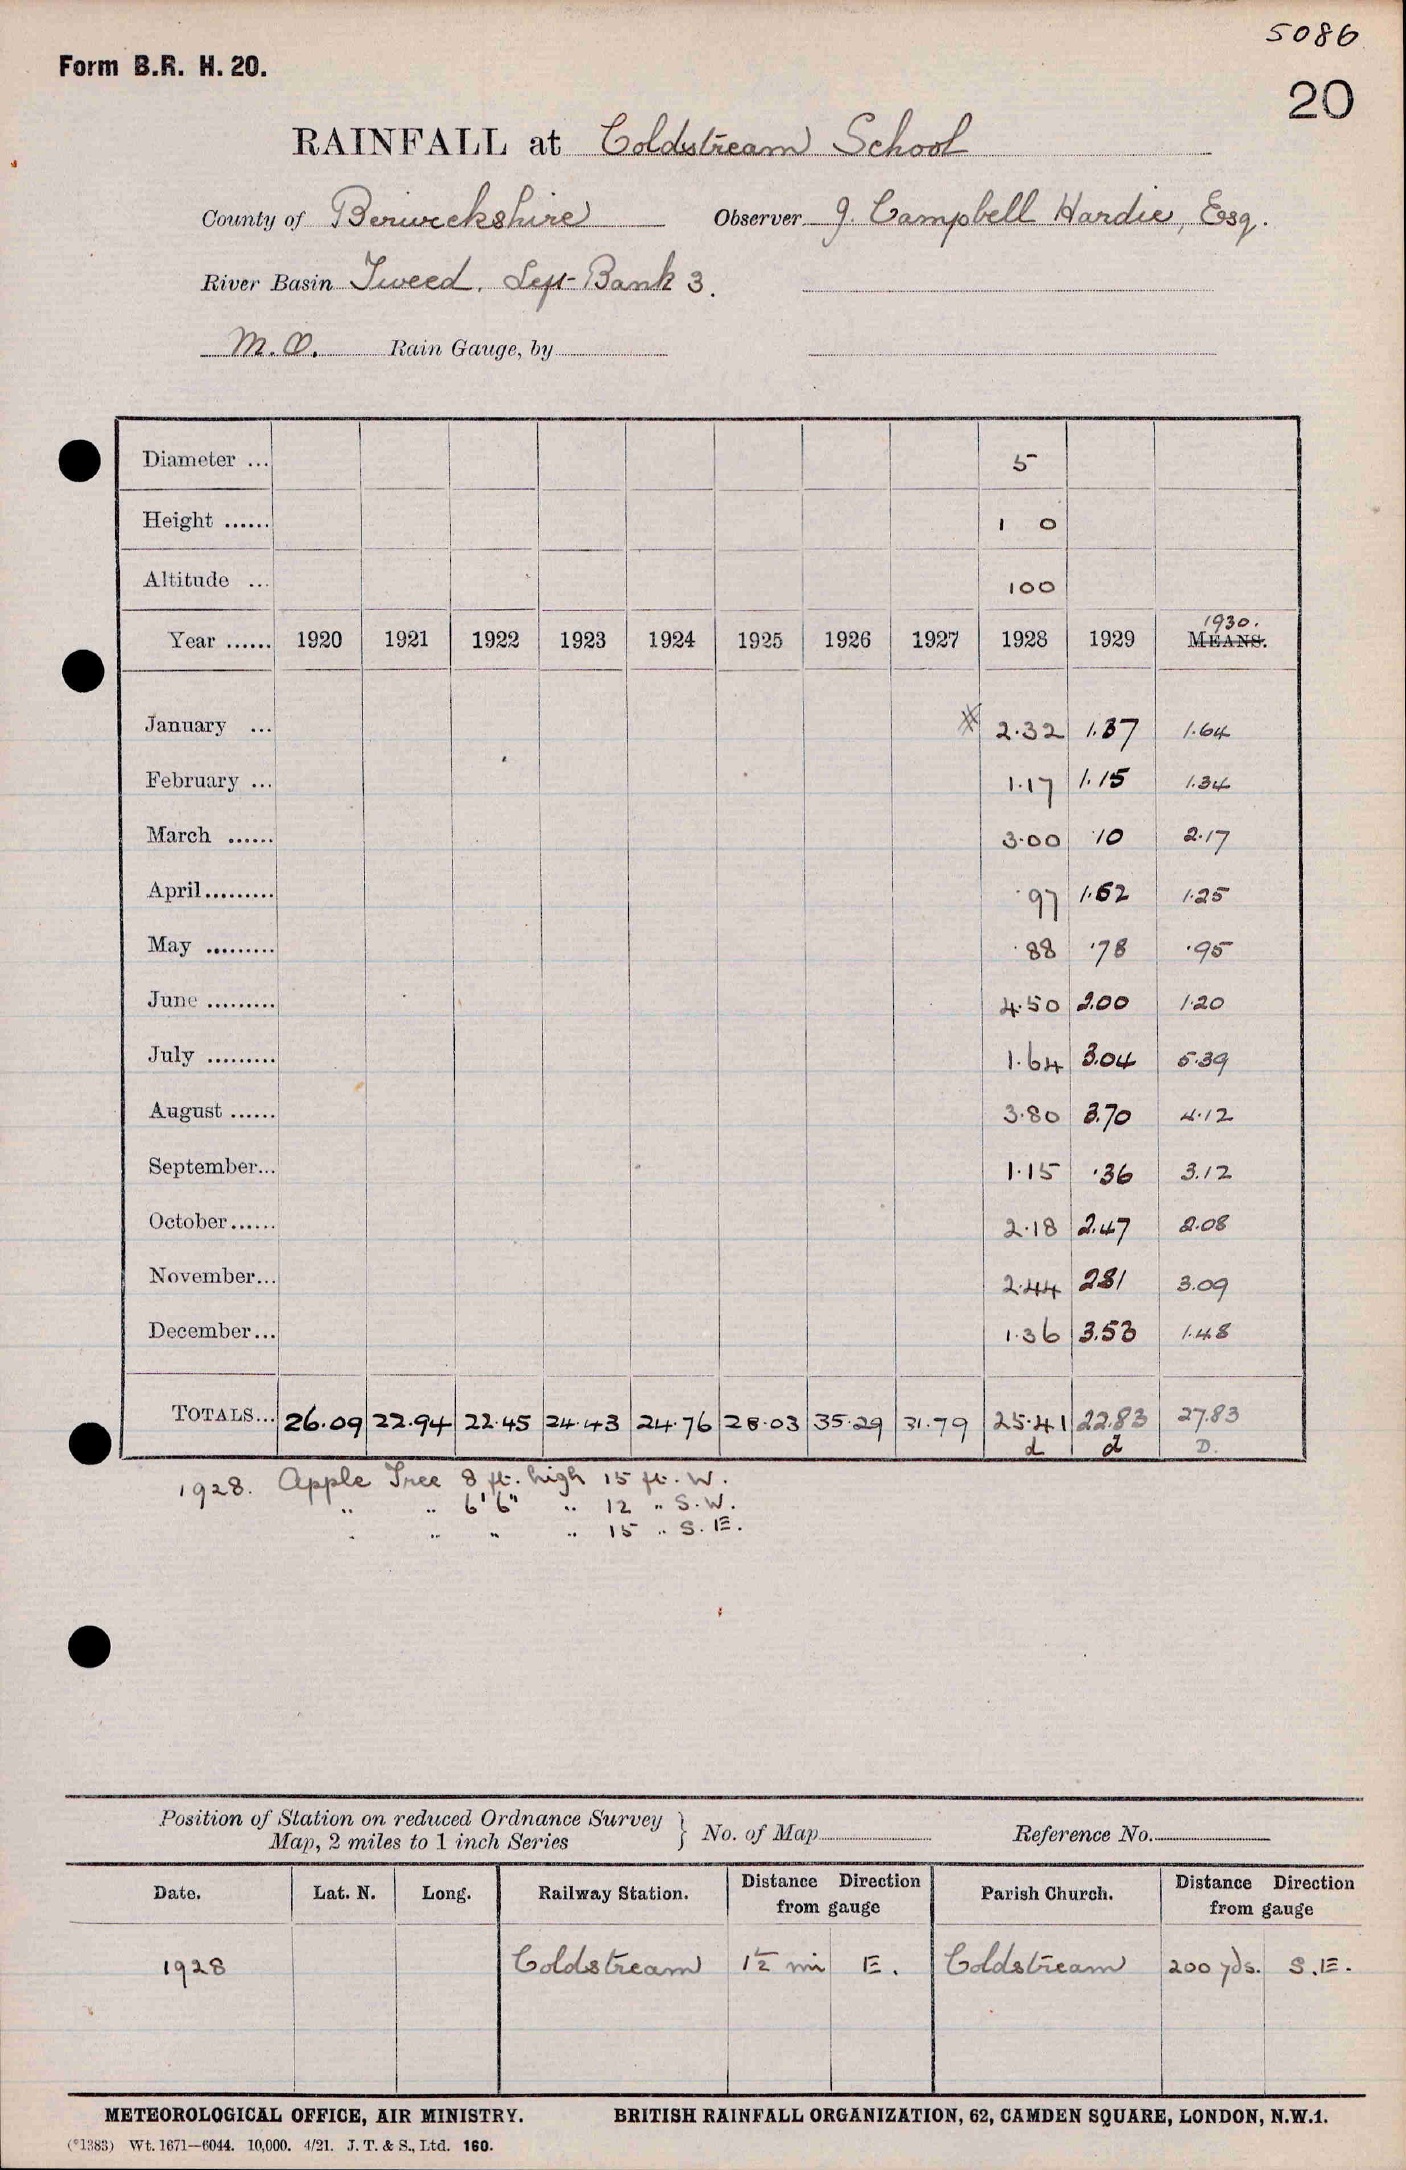 5086
Form B.R. H. 20.
20
RAINFALL at Coldstream School
County of Berwickshire Observer J. Campbell Hardie, Esq.
River Basin Tweed. Left Bank 3.
M.O. Rain Gauge, by
Diameter ... 5
Height ...... 1 0
Altitude ... 100
1930.
Year ...... 1920 1921 1922 1923 1924 1925 1926 1927 1928 1929 MEANS.
January ... 2.32 1.37 1.64
February ... 1.17 1.15 1.34
March ...... 3.00 .10 2.17
April......... .97 1.52 1.25
May ......... .88 .78 .95
June ......... 4.50 2.00 1.20
July ......... 1.64 3.04 5.39
August ...... 3.80 3.70 4.12
September... 1.15 .36 3.12
October...... 2.18 2.47 2.08
November... 2.44 2.81 3.09
December... 1.36 3.53 1.48
TOTALS... 26.09 22.94 22.45 24.43 24.76 28.03 35.29 31.79 25.41 22.83 27.83
d d D.
1928. Apple Tree 8 ft. high 15 ft. W.
" " 6'6" " 12 " S.W.
" " " " 15 " S.E.
Position of Station on reduced Ordnance Survey
Map, 2 miles to 1 inch Series } No. of Map Reference No.
Date. Lat. N. Long. Railway Station. Distance Direction from gauge Parish Church. Distance Direction from gauge
1928 Coldstream 1½ mi E. Coldstream 200 yds. S.E.
METEOROLOGICAL OFFICE, AIR MINISTRY. BRITISH RAINFALL ORGANIZATION, 62, CAMDEN SQUARE, LONDON, N.W.1.
(*1383) Wt. 1671—6044. 10,000. 4/21. J. T. & S., Ltd. 160.